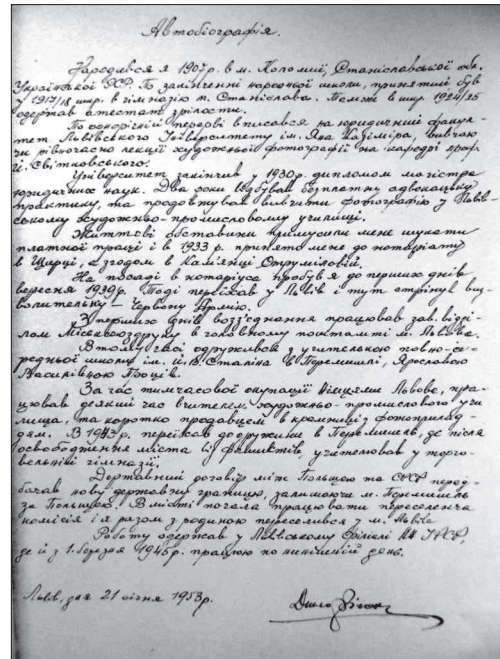 Автобіографія.
Народився я 1907р. в м. Коломиї, Станіславської обл.
Української РСР. По закінченні народної школи, принятий був
у 1917/18 шкр. в гімназію м. Станіслава. Там же в шкр. 1924/25
одержав атестат зрілости.
По однорічній перерві вписався на юридичний факуль-
тет Львівського Університету ім. Яна Казіміра, вивчаю
чи рівночасно лекції художньої фотографії на катедрі проф.
Й. Світковського.
Університет закінчив у 1930р. дипломом магістра
юридичних наук. Два роки відбував безплатну адвокацьку
практику, та продовжував вивчати фотографію у Львів-
ському художньо-промисловому училищі.
Життєві обставини примусили мене шукати
платної праці і в 1933 р. принято мене до нотаріяту
в Щирці, а згодом в Камянці Струміловій.
На посаді в нотаріуса пробув я до перших днів
вересня 1939р. Тоді переїхав у Львів і тут стрінув виз-
волительку – Червону Армію.
З перших днів возз'єднання працював зав. відді-
лом в головному поштамті м. Львова.
В тому часі одружився з учителькою повно-се-
редньої школи ім. Й. В. Сталіна в Перемишлі, Ярославою
Василівною Боців.
За час тимчасової окупації Німцями Львова, пра-
цював деякий час вчителем художньо-промислового учи
лища, та коротко продавцем в крамниці з фотоприлад-
дям. В 1943р. переїхав до дружини в Перемишель, де після
освободження міста від фашистів, учителював у торго-
вельній гімназії.
Державний договір між Польщею та СРСР перед-
бачав нову державну границю, залишаючи м. Перемишель
за Польщею. В місті почала працювати переселенча
комісія і я разом з родиною переселився у м. Львів
Роботу одержав у Львівському Філіялі АН УРСР,
де й з 1. березня 1945р. працюю по нинішній день.
Львів, дня 21 січня 1953р.